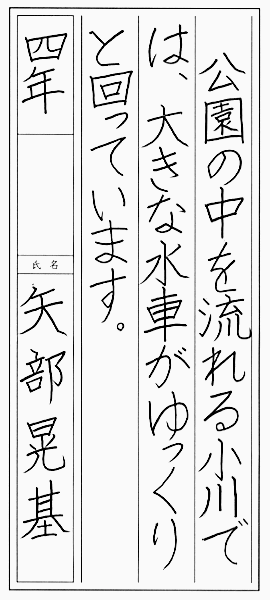 公園の中を流れる小川で
は、大きな水車がゆっくり
と回っています。
四年
氏名
矢部晃基